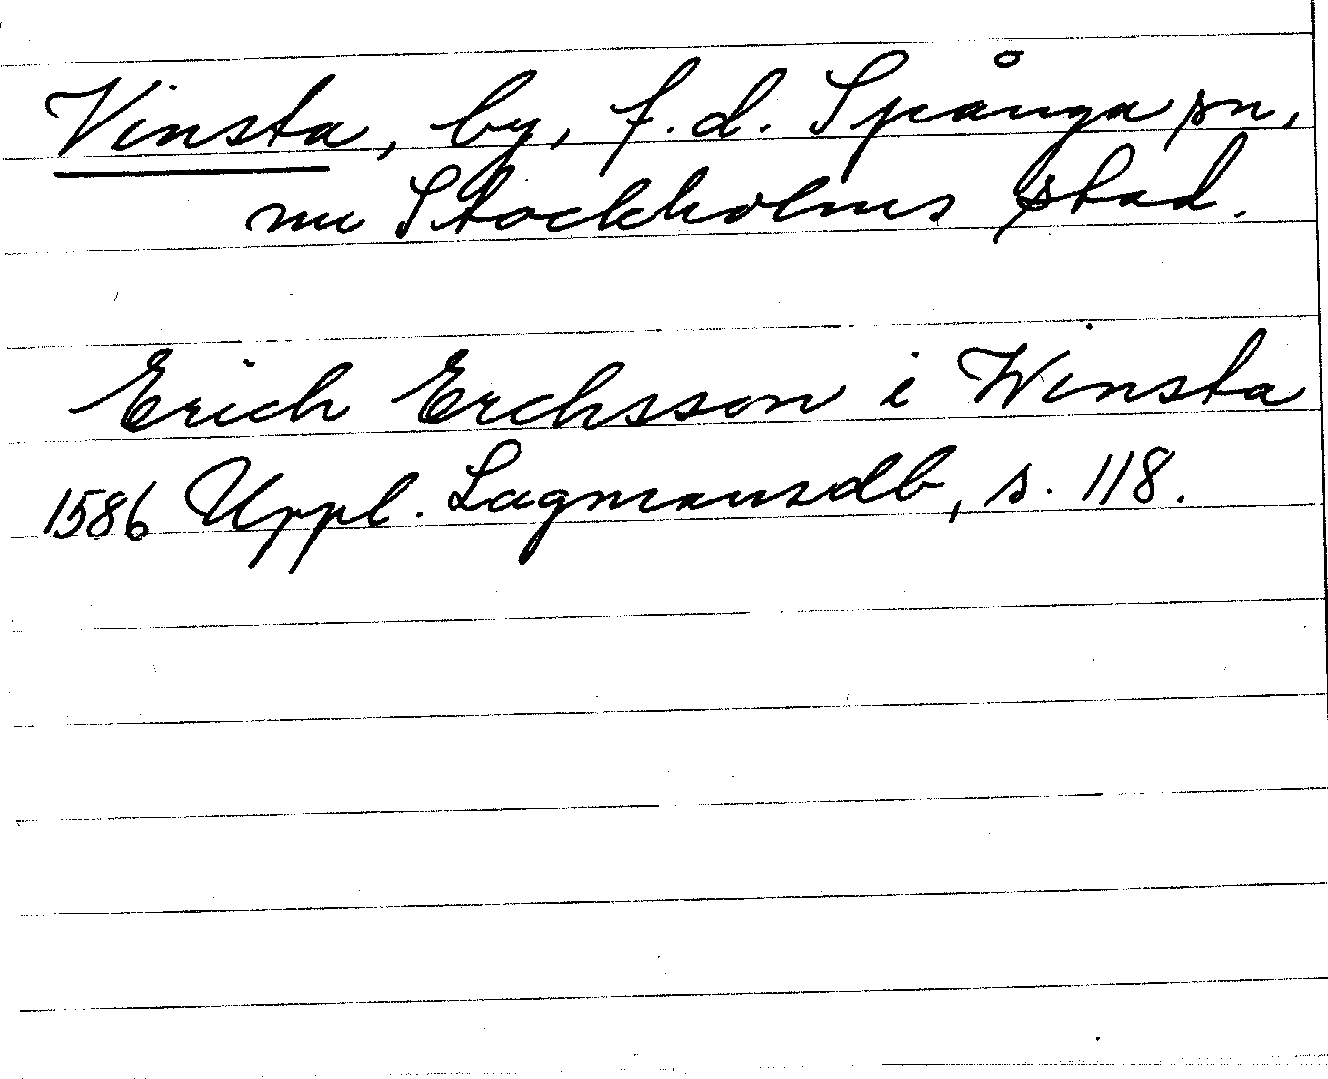 Vinsta, by, f.d. Spånga sn,
nu Stockholms stad.
Erich Erchsson i Winsta
1586 Uppl. Lagmansdb, s. 118.